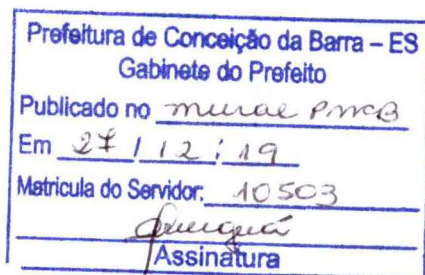 Prefeitura de Conceição da Barra – ES
Gabinete do Prefeito
Publicado no mural PMCB
Em 27 / 12 / 19
Matricula do Servidor: 10503
Assinatura